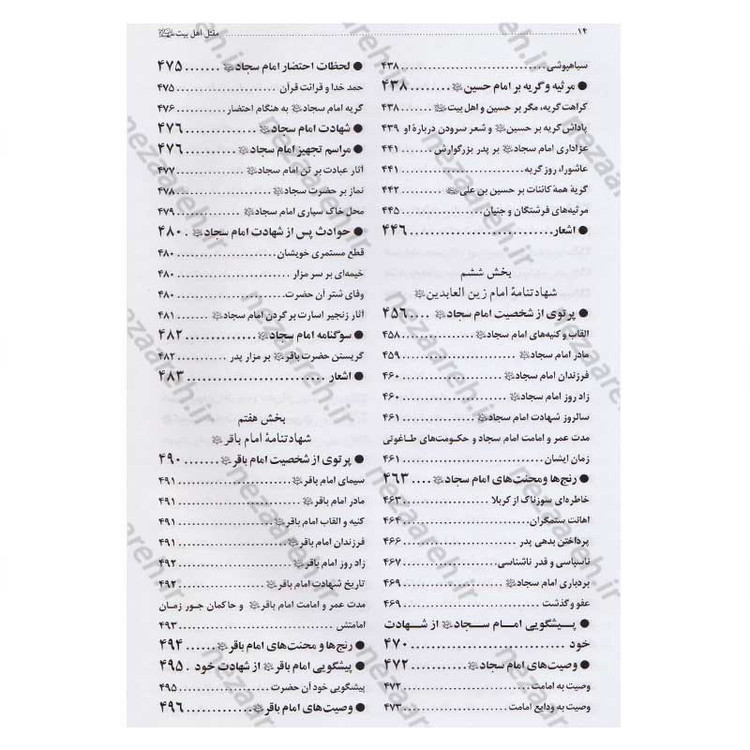 ۱۴ ........ مقتل اهل بیت
سیاهپوشی ........ ۴۳۸
● مرثیه وگریه بر امام حسین ........ ۴۳۸
کراهت گریه، مگر بر حسین و اهل بیت ........ ۴۳۸
پاداش گریه بر حسین و شعر سرودن دربارۀ او ۴۳۹
عزاداری امام سجاد بر پدر بزرگوارش ........ ۴۴۱
عاشورا، روز گریه ........ ۴۴۱
گریۀ همۀ کائنات بر حسین بن علی ........ ۴۴۲
مرثیه‌های فرشتگان و جنیان ........ ۴۴۵
● اشعار ........ ۴۴۶
بخش ششم
شهادتنامۀ امام زین العابدین
● پرتوی از شخصیت امام سجاد .... ۴۵۶
القاب و کنیه‌های امام سجاد ........ ۴۵۸
مادر امام سجاد ........ ۴۵۹
فرزندان امام سجاد ........ ۴۶۰
زاد روز امام سجاد ........ ۴۶۰
سالروز شهادت امام سجاد ........ ۴۶۱
مدت عمر و امامت امام سجاد و حکومت‌های طاغوتی
زمان ایشان ........ ۴۶۱
● رنج‌ها ومحنت‌های امام سجاد .... ۴۶۳
خاطره‌ای سوزناک از کربلا ........ ۴۶۳
اهانت ستمگران ........ ۴۶۴
پرداختن بدهی پدر ........ ۴۶۶
ناسپاسی و قدر ناشناسی ........ ۴۶۷
بردباری امام سجاد ........ ۴۶۹
عفو و گذشت ........ ۴۶۹
● پیشگویی امام سجاد از شهادت
خود ........ ۴۷۰
● وصیت‌های امام سجاد ........ ۴۷۲
وصیت به امامت ........ ۴۷۲
وصیت به ودایع امامت ........ ۴۷۳
● لحظات احتضار امام سجاد ....... ۴۷۵
حمد خدا و قرائت قرآن ........ ۴۷۵
گریه امام سجاد به هنگام احتضار ........ ۴۷۶
● شهادت امام سجاد ........ ۴۷۶
● مراسم تجهیز امام سجاد ........ ۴۷۶
آثار عبادت بر تن امام سجاد ........ ۴۷۷
نماز بر حضرت سجاد ........ ۴۷۸
محل خاک سپاری امام سجاد ........ ۴۷۹
● حوادث پس از شهادت امام سجاد . ۴۸۰
قطع مستمری خویشان ........ ۴۸۰
خیمه‌ای بر سر مزار ........ ۴۸۰
وفای شتر آن حضرت ........ ۴۸۰
آثار زنجیر اسارت بر گردن امام سجاد ........ ۴۸۱
● سوگنامه امام سجاد ........ ۴۸۲
گریستن حضرت باقر بر مزار پدر ........ ۴۸۲
● اشعار ........ ۴۸۳
بخش هفتم
شهادتنامۀ امام باقر
● پرتوی از شخصیت امام باقر ....... ۴۹۰
سیمای امام باقر ........ ۴۹۱
مادر امام باقر ........ ۴۹۱
کنیه و القاب امام باقر ........ ۴۹۱
فرزندان امام باقر ........ ۴۹۱
زاد روز امام باقر ........ ۴۹۲
تاریخ شهادت امام باقر ........ ۴۹۲
مدت عمر و امامت امام باقر و حاکمان جور زمان
امامتش ........ ۴۹۳
● رنج‌ها و محنت‌های امام باقر ...... ۴۹۴
● پیشگویی امام باقر از شهادت خود . ۴۹۵
پیشگویی خود آن حضرت ........ ۴۹۵
● وصیت‌های امام باقر ........ ۴۹۶
nezaareh.ir